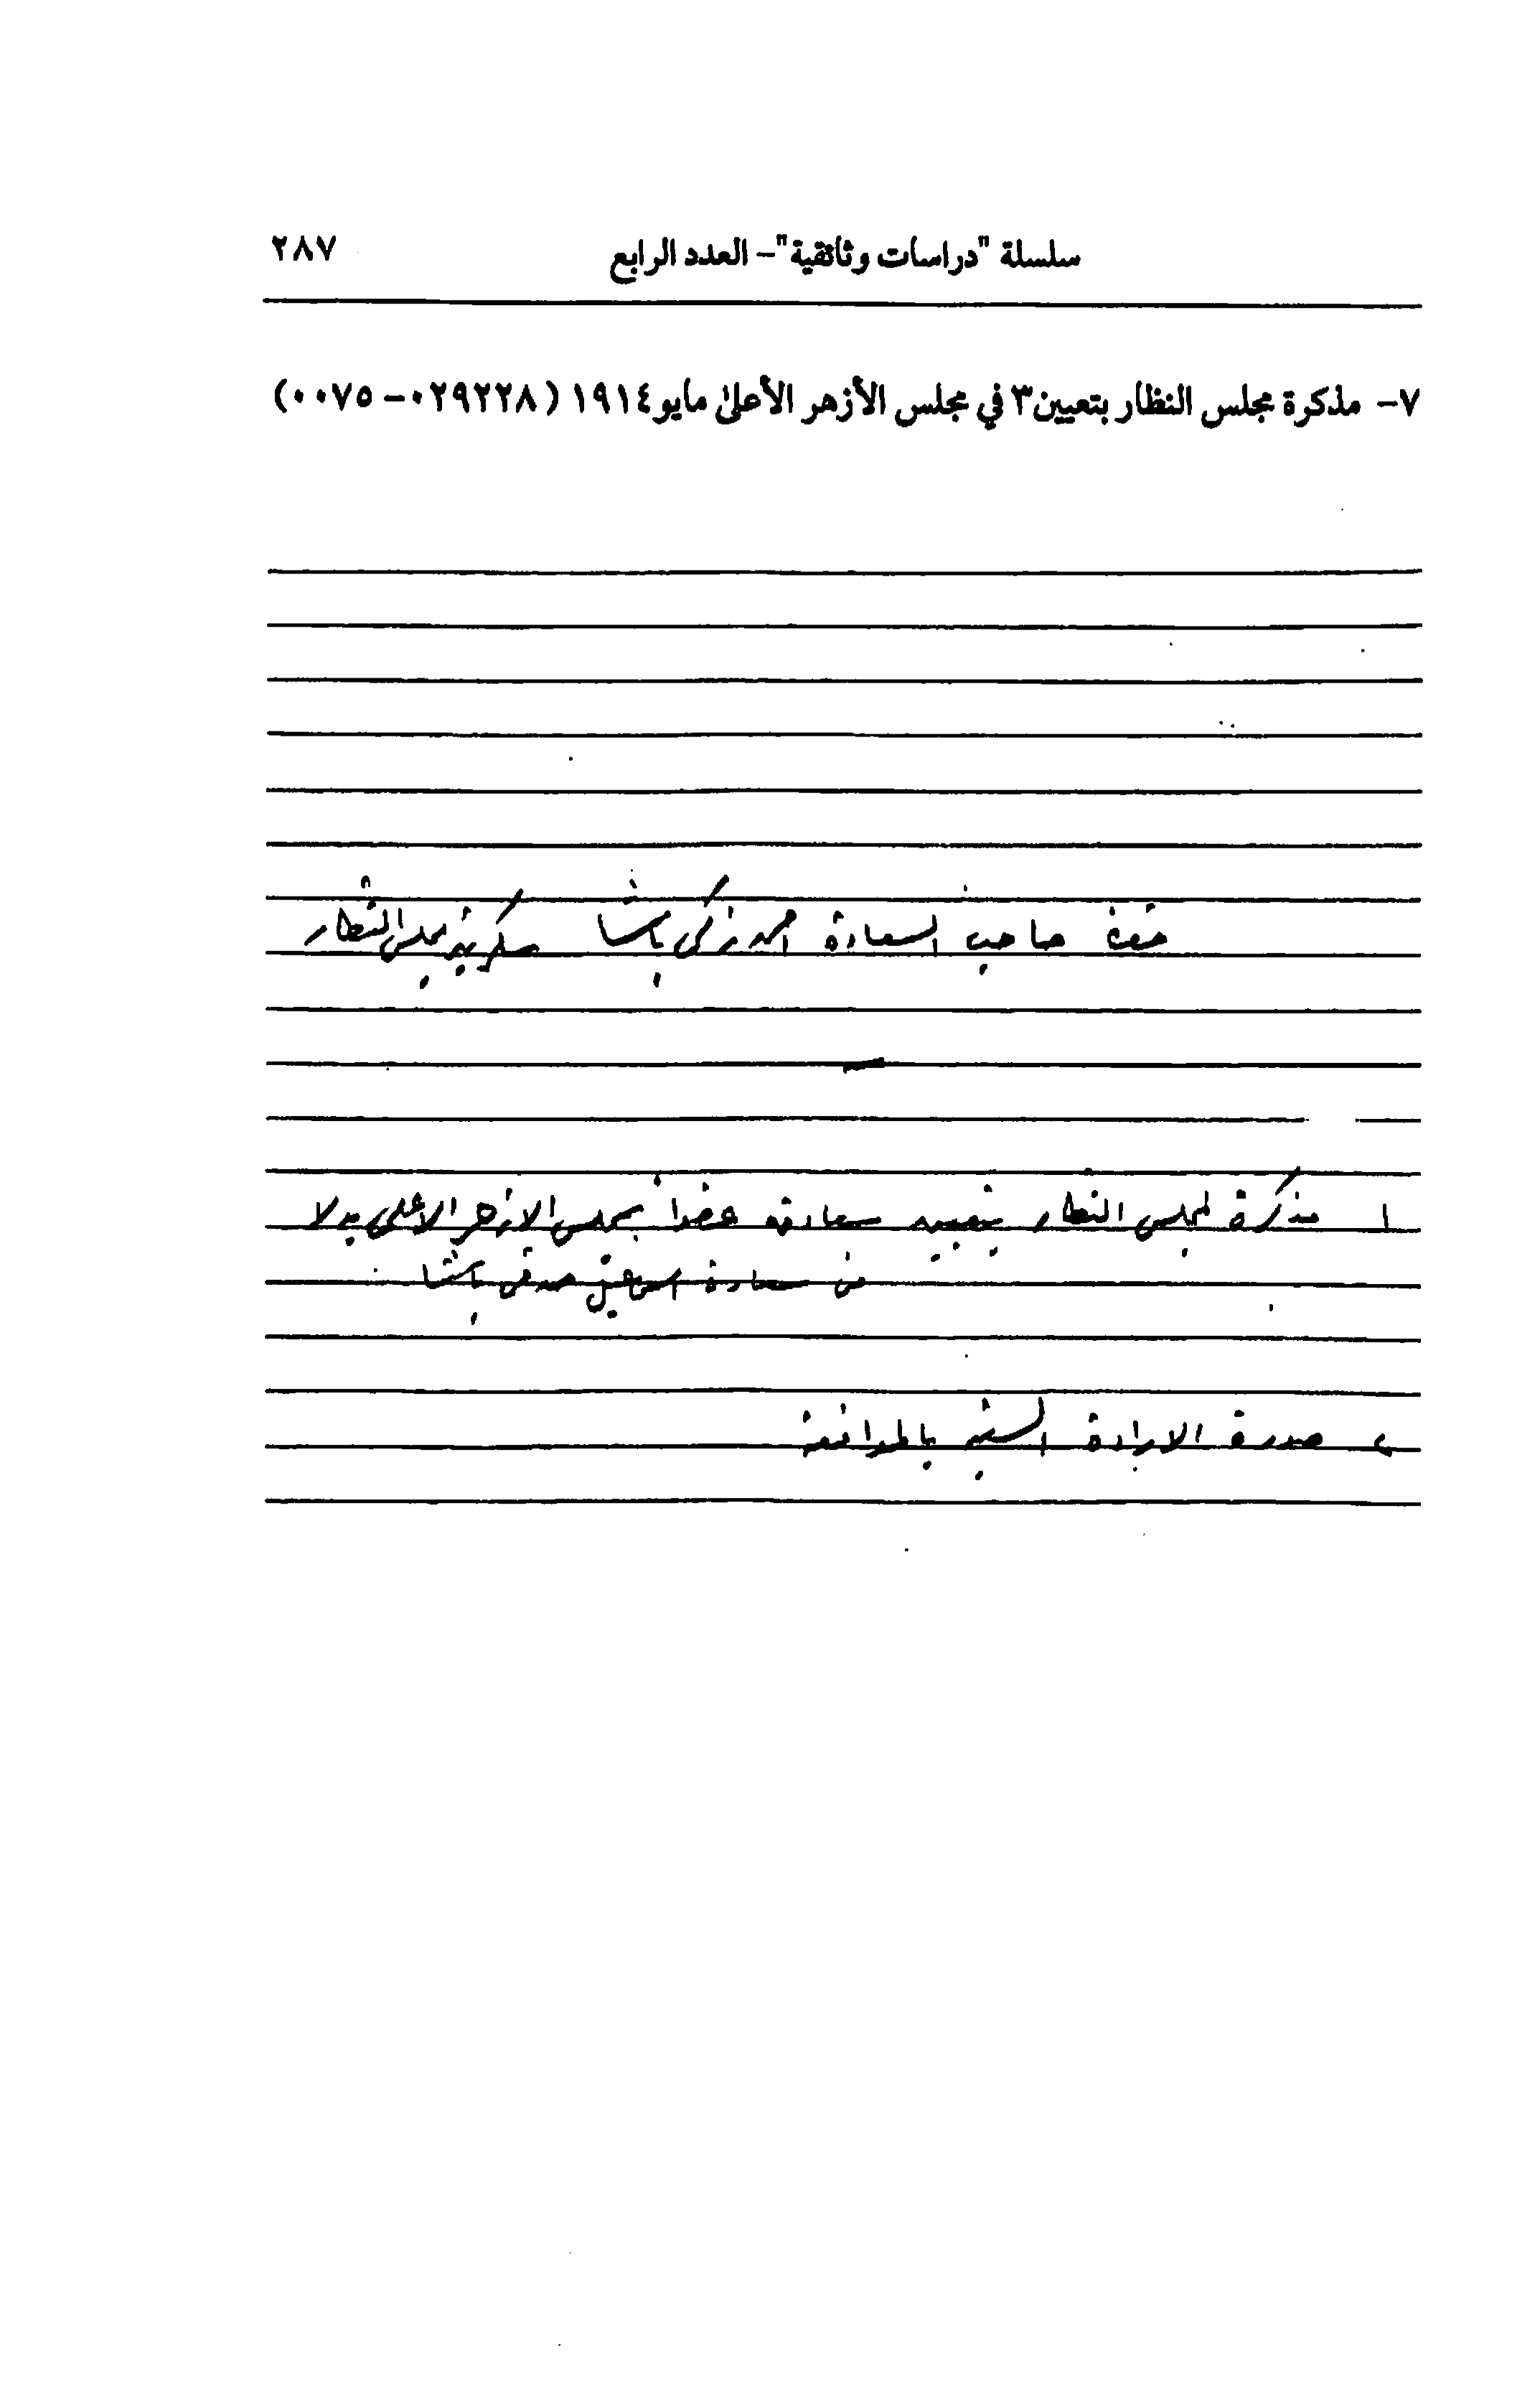 سلسلة "دراسات وثائقية" – العدد الرابع ٢٨٧
٧- مذكرة مجلس النظار بتعيين٣ في مجلس الأزهر الأعلىٰ مايو١٩١٤ (٠٢٩٢٢٨ – ٠٠٧٥)
صاحب السعادة احمد زكى باشا سكرتير مجلس النظار
١ مذكرة لمجلس النظار بتعيين سعادته عضوا بمجلس الازهر الاعلى بدلا
من سعادة اسماعيل صدقى باشا
٢ صورة الارادة السنية بالموافقة